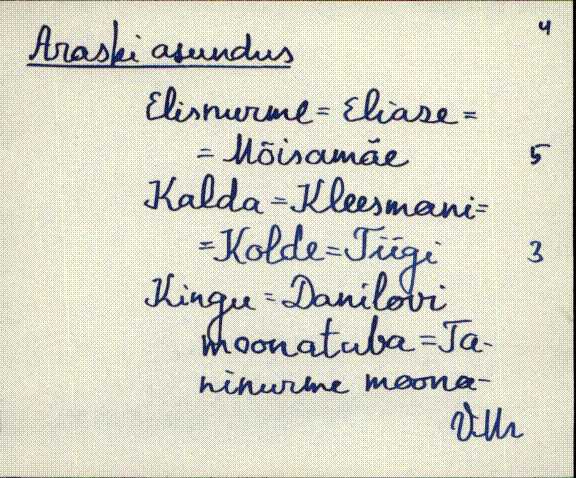 4
Araski asundus
Elisnurme = Eliase =
= Mõisamäe 5
Kalda = Kleesmani =
= Kolde = Tiigi 3
Kingu = Danilovi
moonatuba = Ta-
ninurme moona-